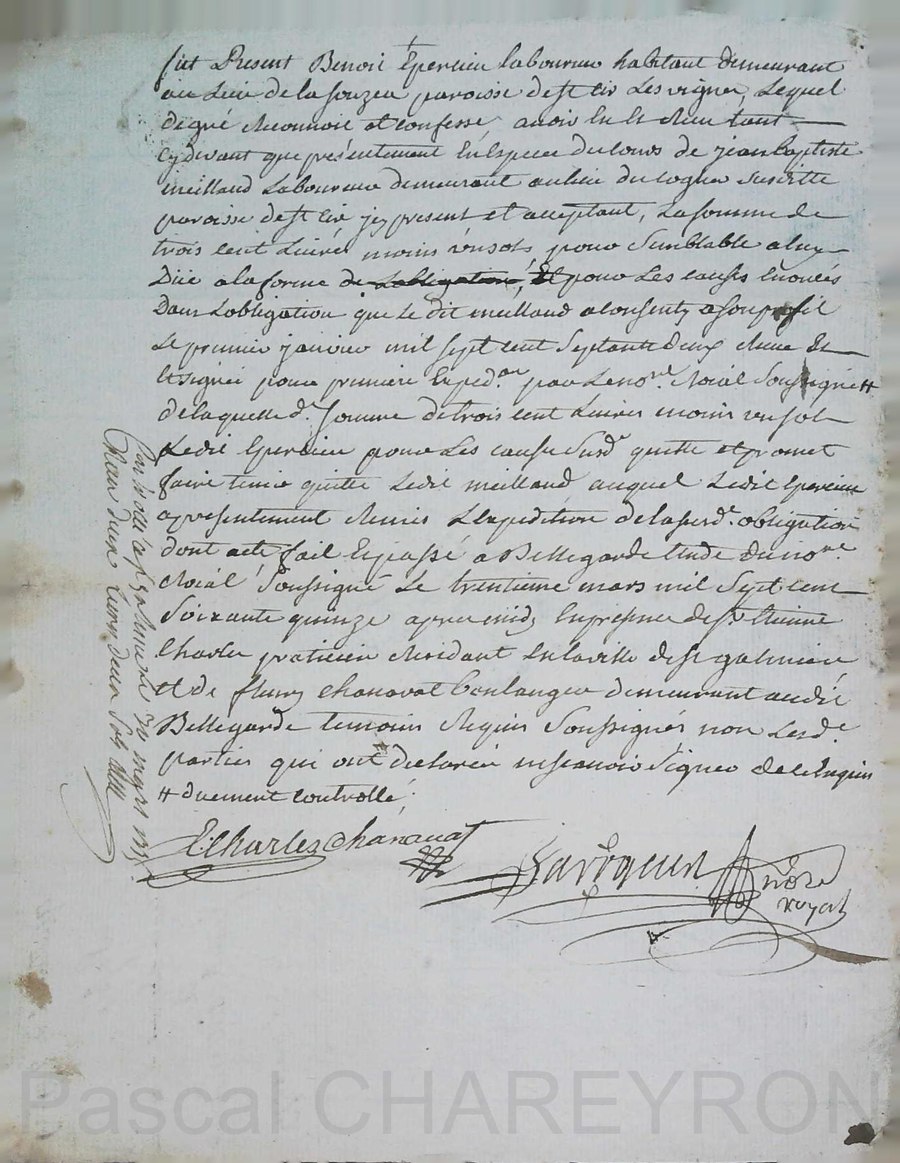 fut Present Benoit Epercieu laboureur habitant demeurant
au Lieu de la fouzea paroisse de st cir Les vignes, Lequel
de gré Reconnoit et confesse avoir Eu et Receu tant
Cy devant que présentement En Especes du cours de jean baptiste
meilland Laboureur demeurant au lieu du cogner susditte
paroisse de st cir jcy present et acceptant, La somme de
trois cent Livres moins un sol, pour Semblable a luy
Due a la forme de Lobligation, Et pour Les causes Enoncés
Dans Lobligation que Le dit meilland a Consenty a son profit
Le premier janvier mil sept cent Septante deux Receue Et
Et signée pour premiere Exped.on par Le no.re Roial Soussigné #
de laquelle d.e somme de trois cent Livres moins un sol
Ledit Epercieu pour Les causes Susd.s quitte et promet
faire tenir quitte Ledit meilland auquel Ledit Epercieu
a présentement Remis L'Expedition de la susd.e obligation
dont acte fait Et passé a Bellegarde Etude du no.re
Roial Soussigné Le trentieme mars mil Sept cent
Soixante quinze apres midy En presence de s.r Etienne
Charles praticien Residant En la ville de st galmier
et de fleury chanavat boulanger demeurant audit
Bellegarde temoins Requis Soussignés non Lesd.
parties qui ont declarées ne scavoir Signer de ce Enquis
# duement controllé;
E. Charles Chanavat
no.re
royal
mars
Reçu Deux Livres Deux sols
Pascal CHAREYRON